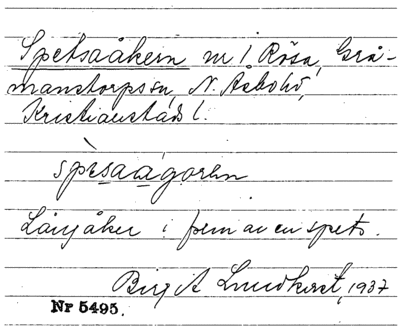 Spetsaåkern m i Rösa, Grå-
manstorps sn, N. Åsbo hd,
Kristianstads l.
spesaagoren
Långåker i form av en spets.
Birg A Lundkvist, 1937
Nr 5495.